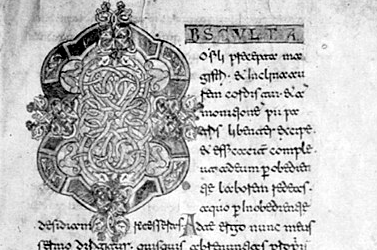 OBSCULTA
O fili precepta ma
gistri · & inclina aure
tuam cordis tui · & ad
monitione pii pa
tris libenter excipe
& efficaciter comple
ut ad eum per obedien
tie laborem redeas
a quo per inobedientie
desidiam recesseras Ad te ergo nunc meus
sermo dirigitur quisquis abrenuntians propriis